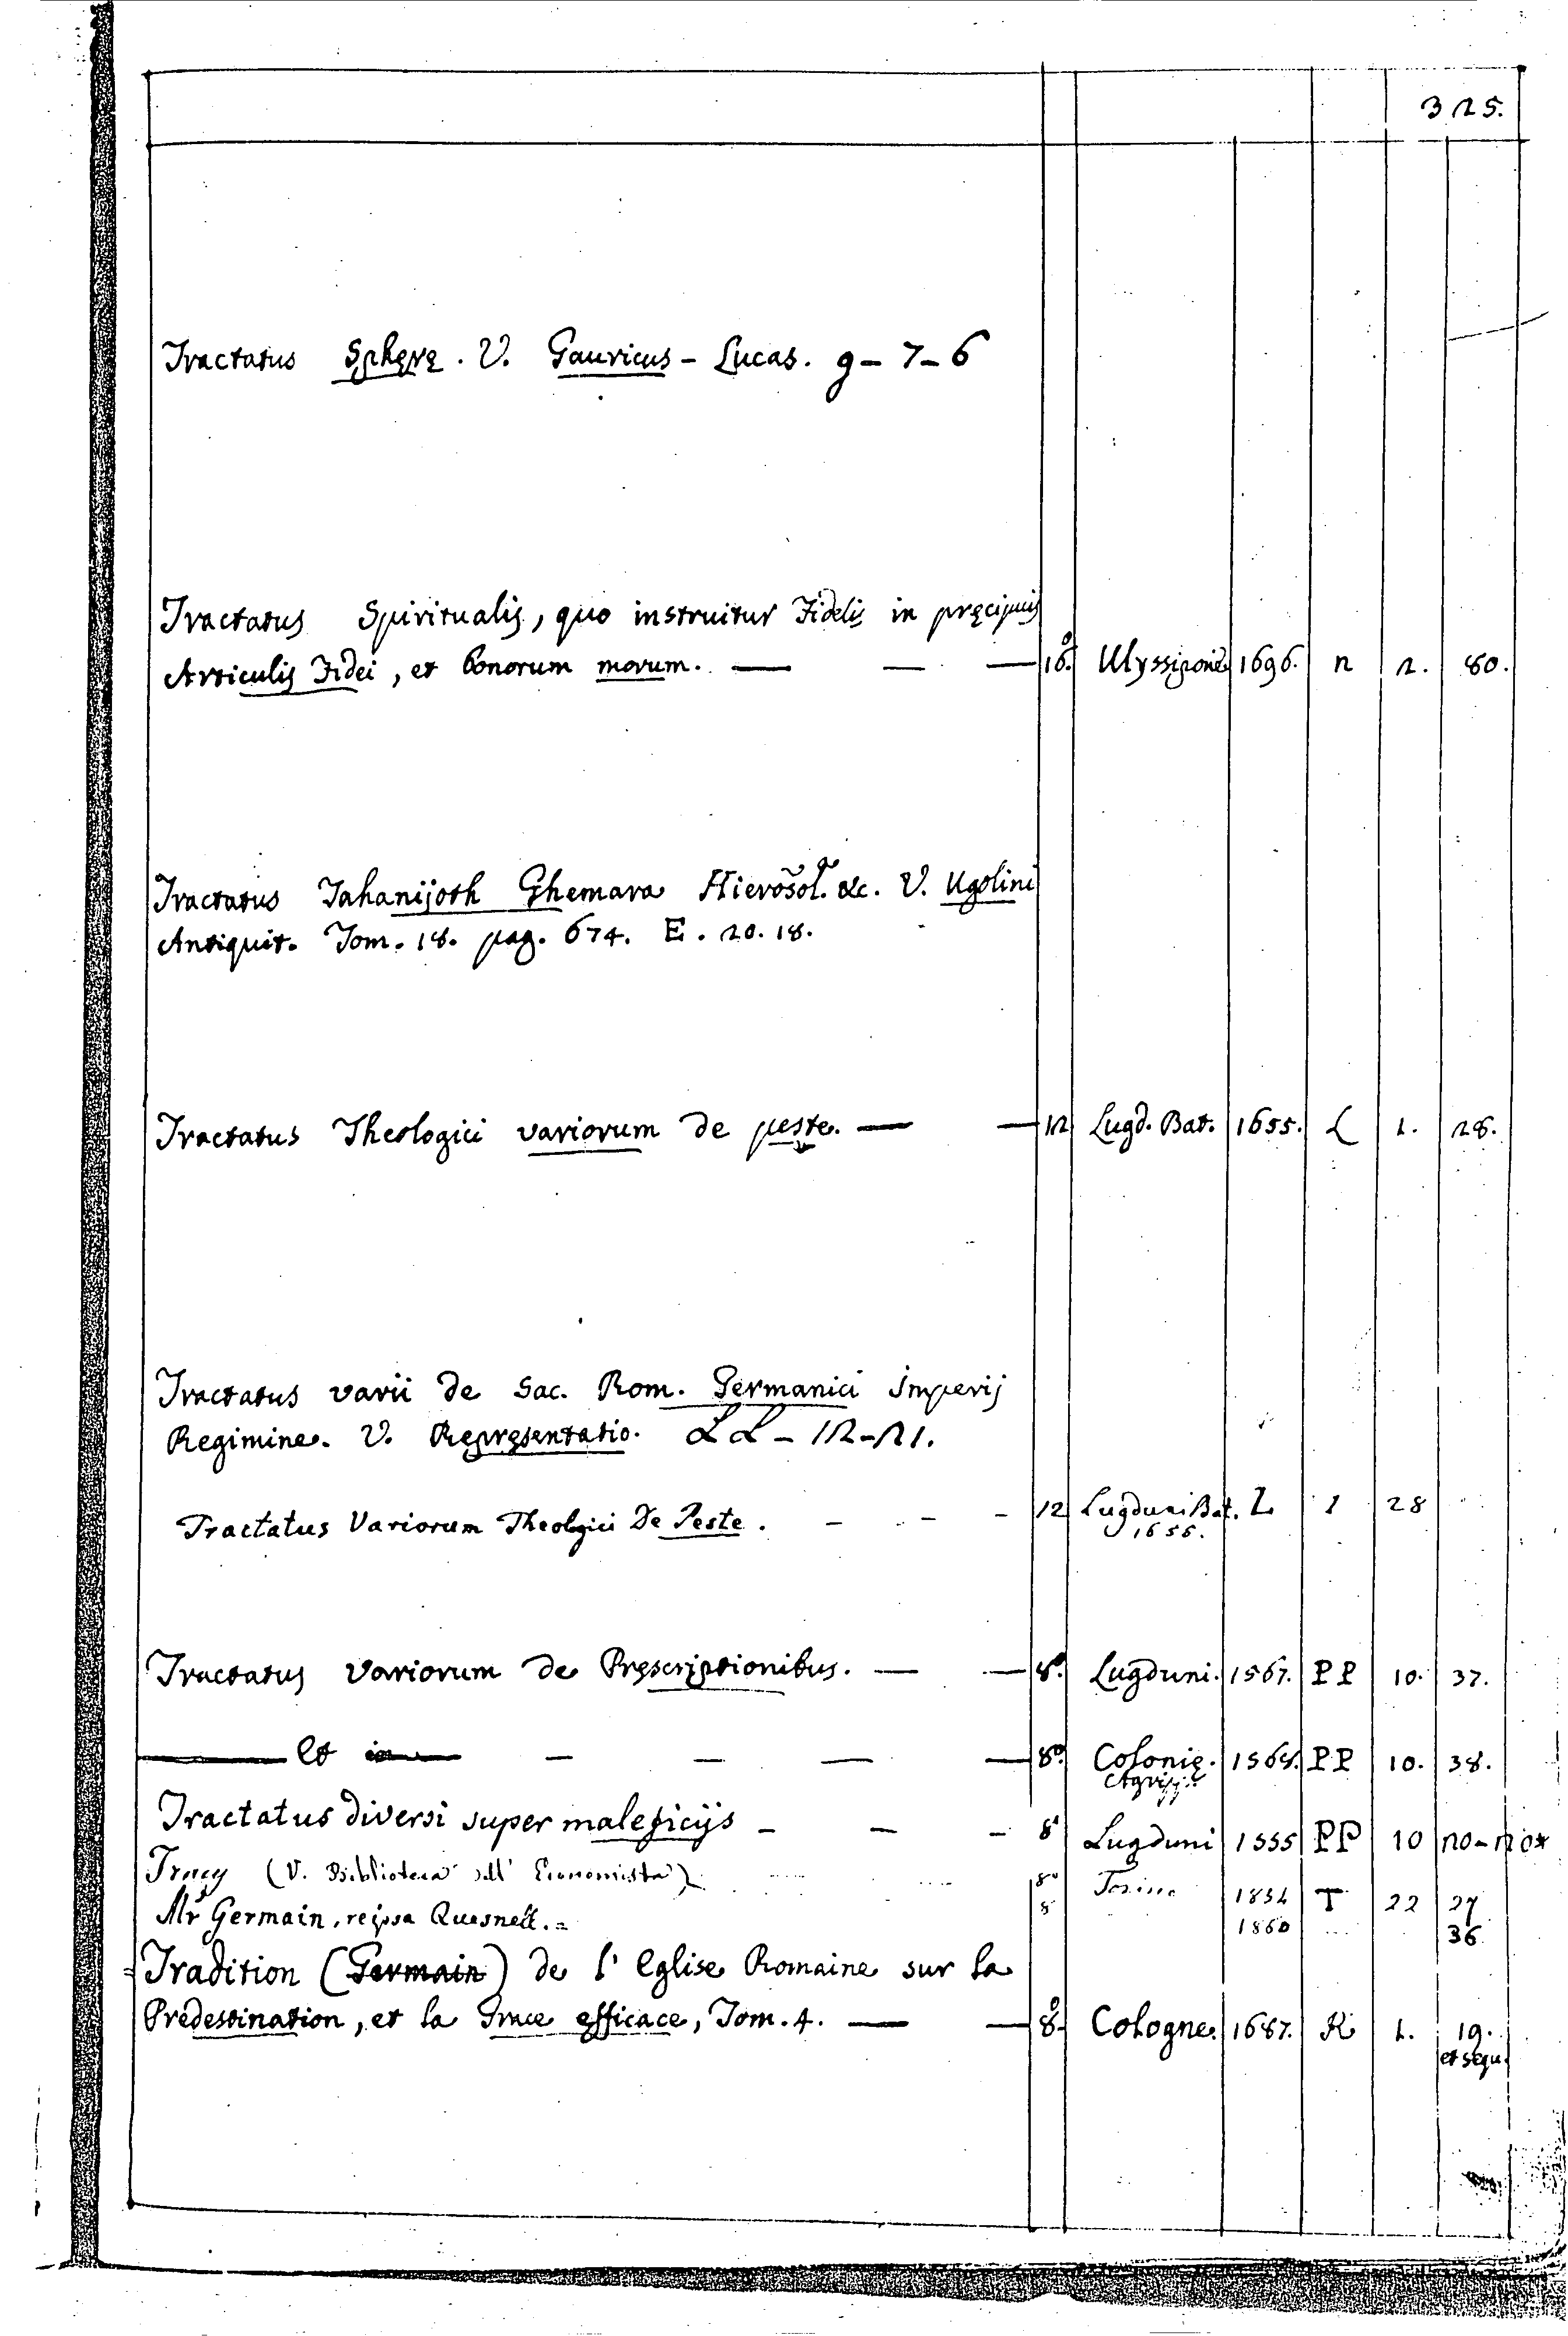 325.
Tractatus Sphęrę. V. Gauricus - Lucas. g - 7 - 6
Tractatus Spiritualis, quo instruitur Fidelis in pręcipuis
Articulis Fidei, et bonorum morum. — — — 16.º Ulyssipone 1696. n 2. 80.
Tractatus Tahanijoth Ghemara Hierosol. &c. V. Ugolini
Antiquit. Tom. 18. pag. 674. E. 20. 18.
Tractatus Theologici variorum de peste. — — 12 Lugd. Bat. 1655. L 1. 28.
Tractatus varii de Sac. Rom. Germanici Imperij
Regimine. V. Repręsentatio. LL - 12 - 21.
Tractatus Variorum Theologici De Peste. - - - - 12 Lugduni Bat. L 1 28
1656.
Tractatus variorum de Pręscriptionibus. — — 8.º Lugduni. 1567. PP 10. 37.
— et — — — — 8.º Colonię. 1568. PP 10. 38.
Agripp.
Tractatus diversi super maleficijs - - - 8º Lugduni 1555 PP 10 20-20*
Tracy (V. Biblioteca dell' Economista) 8º Torino 1854 T 22 27
1860 36
Mr Germain, reipsa Quesnell. = 8
Tradition (Germain) de l'Eglise Romaine sur la
Predestination, et la Grace efficace, Tom. 4. — — 8.º Cologne. 1687. K 1. 19.
et sequ.